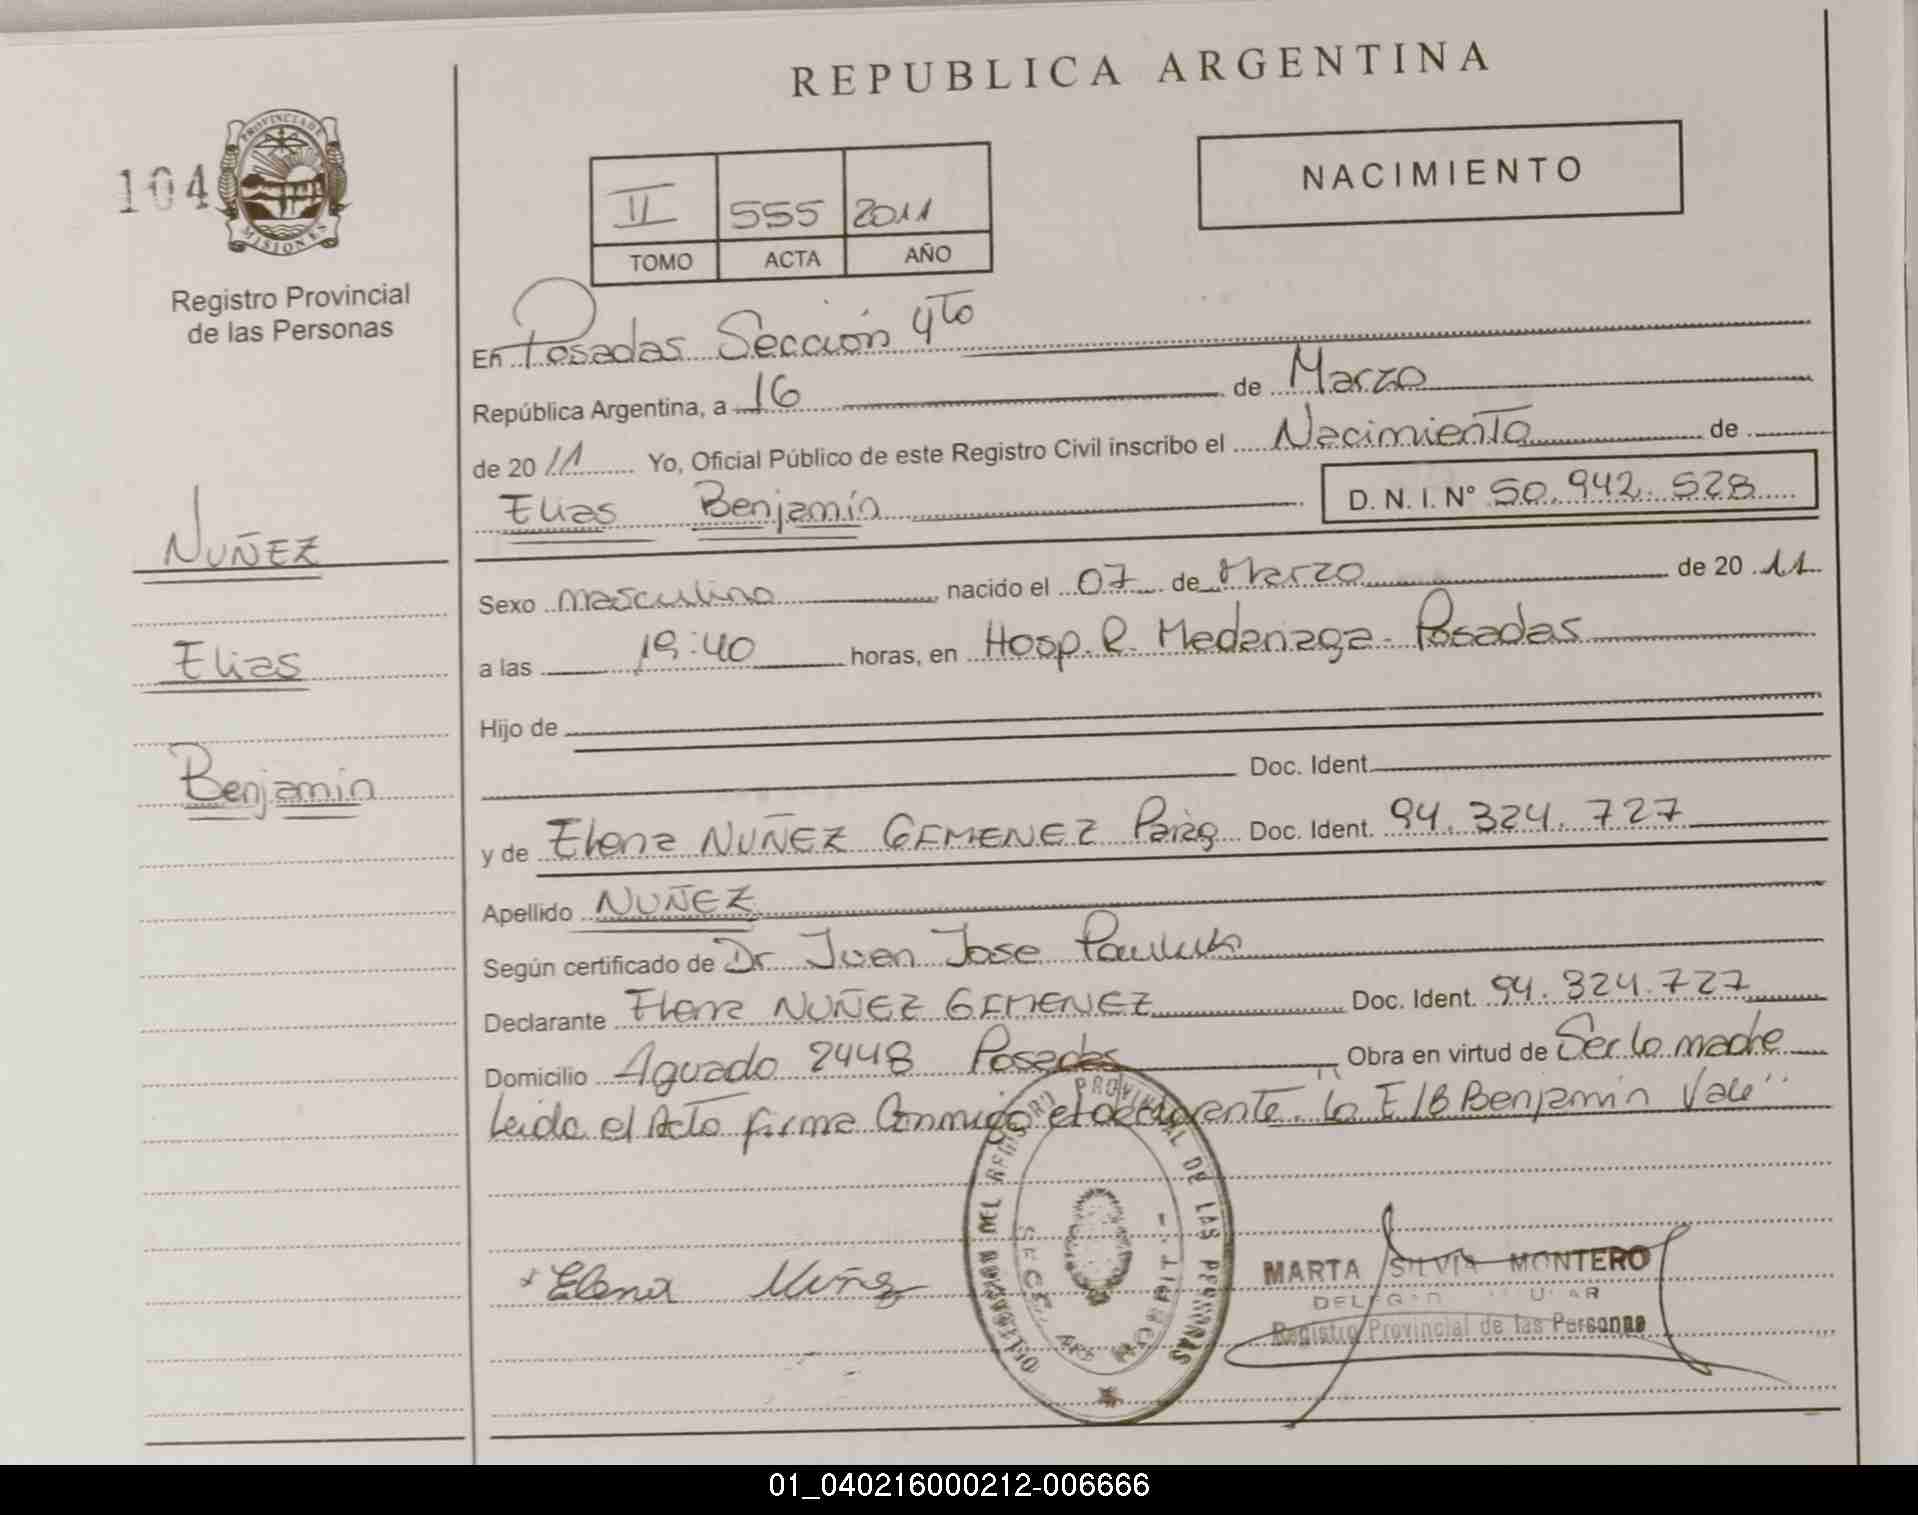 REPUBLICA ARGENTINA
104
PROVINCIA DE MISIONES
Registro Provincial
de las Personas
II 555 2011
TOMO ACTA AÑO
NACIMIENTO
En Posadas Sección 4to
República Argentina, a 16 de Marzo
de 20 11 Yo, Oficial Público de este Registro Civil inscribo el Nacimiento de
Elias Benjamín D. N. I. Nº 50.942.528
NUÑEZ
Elias
Benjamín
Sexo masculino nacido el 07 de Marzo de 20 11
a las 19:40 horas, en Hosp. R. Madariaga - Posadas
Hijo de
Doc. Ident.
y de Elena NUÑEZ GIMENEZ Parag Doc. Ident. 94.324.727
Apellido NUÑEZ
Según certificado de Dr Juan Jose
Declarante Elena NUÑEZ GIMENEZ Doc. Ident. 94.324.727
Domicilio Aguado 2448 Posadas Obra en virtud de Ser la madre
Leida el Acta firma Conmigo el declarante. "lo E/B Benjamín Vale"
Elena Nuñez
REGISTRO PROVINCIAL DE LAS PERSONAS
MARTA SILVIA MONTERO
Registro Provincial de las Personas
01_040216000212-006666